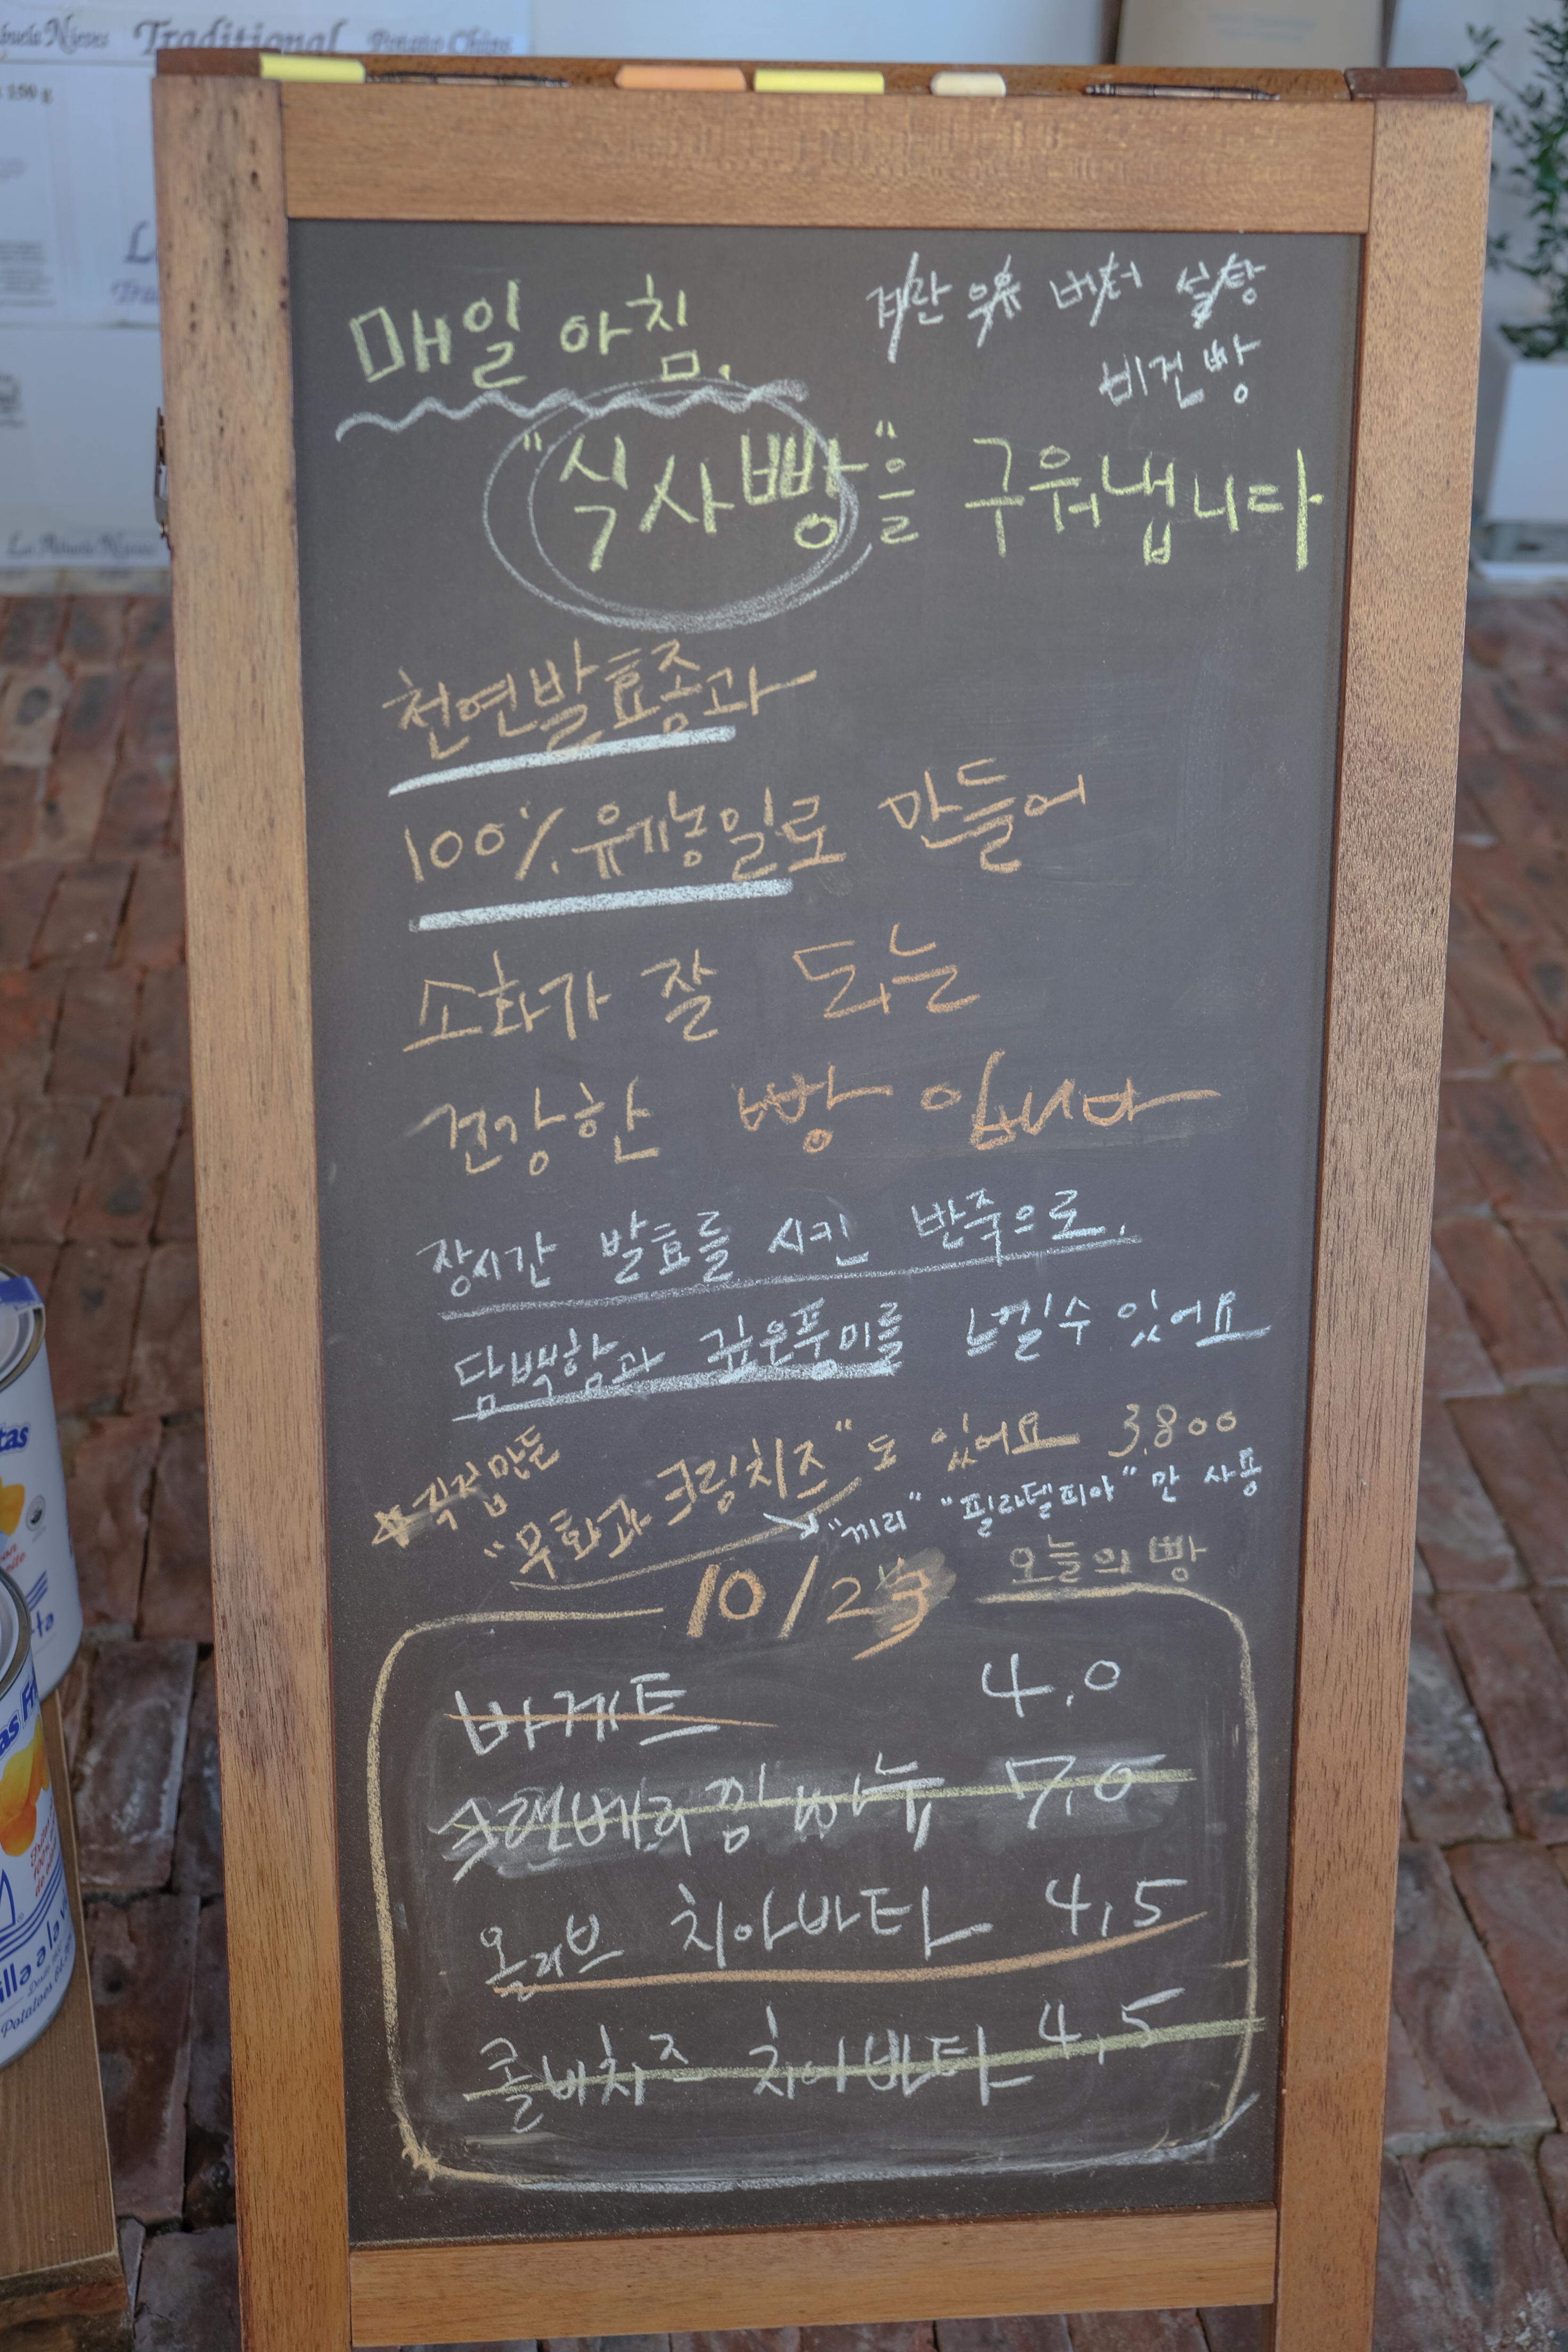 Abuela Nieves Traditional Potato Chips
150 g
La Abuela Nieves
매일 아침.
계란 우유 버터 설탕
비건빵
"식사빵"을 구워냅니다
천연발효종과
100% 유기농밀로 만들어
소화가 잘 되는
건강한 빵 입니다
장시간 발효를 시킨 반죽으로.
담백함과 깊은풍미를 느낄수 있어요
직접만든
"무화과 크림치즈"도 있어요 3,800
"끼리" "필라델피아"만 사용
10/23 오늘의 빵
바게트 4.0
크랜베리 깜빠뉴 7.0
올리브 치아바타 4,5
콜비치즈 치아바타 4,5